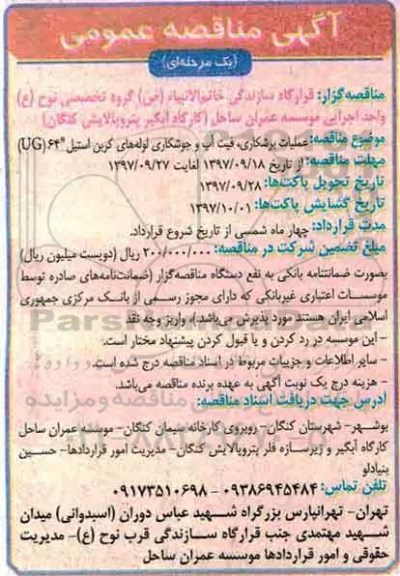 آگهی مناقصه عمومی
(یک مرحله‌ای)
مناقصه‌گزار: قرارگاه سازندگی خاتم‌الانبیاء (ص) گروه تخصصی نوح (ع)
واحد اجرایی موسسه عمران ساحل (کارگاه آبگیر پتروپالایش کنگان)
موضوع مناقصه: عملیات برشکاری، فیت آپ و جوشکاری لوله‌های کربن استیل "۶۴ (UG)
مهلت مناقصه: از تاریخ ۱۳۹۷/۰۹/۱۸ لغایت ۱۳۹۷/۰۹/۲۷
تاریخ تحویل پاکت‌ها: ۱۳۹۷/۰۹/۲۸
تاریخ گشایش پاکت‌ها: ۱۳۹۷/۱۰/۰۱
مدت قرارداد: چهار ماه شمسی از تاریخ شروع قرارداد.
مبلغ تضمین شرکت در مناقصه: ۲۰۰/۰۰۰/۰۰۰ ریال (دویست میلیون ریال)
بصورت ضمانتنامه بانکی به نفع دستگاه مناقصه‌گزار (ضمانت‌نامه‌های صادره توسط
موسسات اعتباری غیربانکی که دارای مجوز رسمی از بانک مرکزی جمهوری
اسلامی ایران هستند مورد پذیرش می‌باشد)، واریز وجه نقد
- این موسسه در رد کردن و یا قبول کردن پیشنهاد مختار است.
- سایر اطلاعات و جزییات مربوط در اسناد مناقصه درج شده است.
- هزینه درج یک نوبت آگهی به عهده برنده مناقصه می‌باشد.
آدرس جهت دریافت اسناد مناقصه:
بوشهر- شهرستان کنگان- روبروی کارخانه سیمان کنگان- موسسه عمران ساحل
کارگاه آبگیر و زیرسازه فلر پتروپالایش کنگان- مدیریت امور قراردادها- حسین
بنیادلو
تلفن تماس: ۰۹۳۸۶۹۴۵۴۸۴ - ۰۹۱۷۳۵۱۰۶۹۸
تهران- تهرانپارس بزرگراه شهید عباس دوران (اسبدوانی) میدان
شهید مهتمدی جنب قرارگاه سازندگی قرب نوح (ع)- مدیریت
حقوقی و امور قراردادها موسسه عمران ساحل